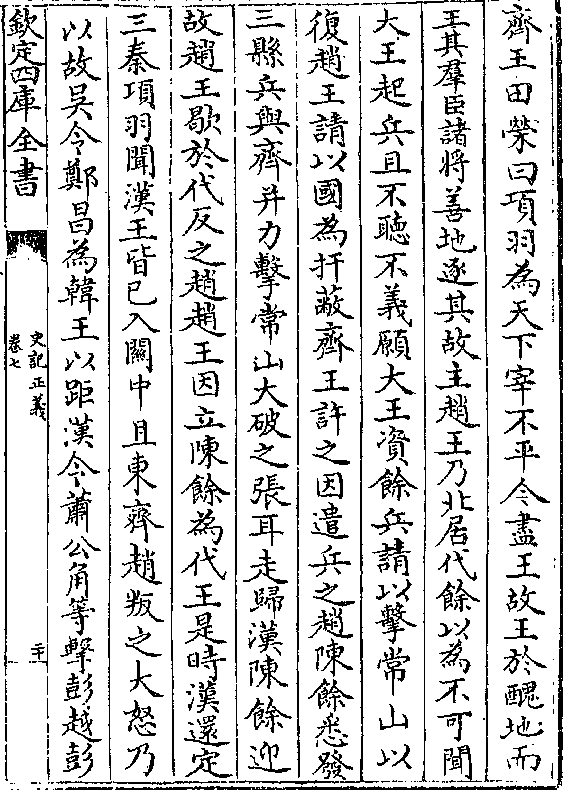 齊王田榮曰項羽為天下宰不平今盡王故王於醜地而
王其羣臣諸将善地逐其故主趙王乃北居代餘以為不可聞
大王起兵且不聽不義願大王資餘兵請以擊常山以
復趙王請以國為扞蔽齊王許之因遣兵之趙陳餘悉發
三縣兵與齊并力擊常山大破之張耳走歸漢陳餘迎
故趙王歇於代反之趙趙王因立陳餘為代王是時漢還定
三秦項羽聞漢王皆已入關中且東齊趙叛之大怒乃
以故吴令鄭昌為韓王以距漢令蕭公角等擊彭越彭
欽定四庫全書
史記正義
卷七
二十